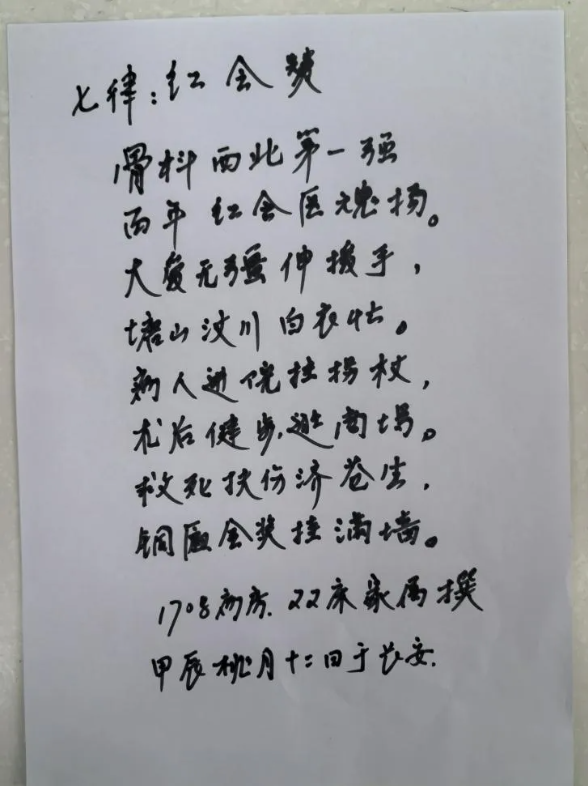 七律：红会赞
骨科西北第一强
百年红会医魂扬。
大爱无疆伸援手，
唐山汶川白衣忙。
病人进院拄拐杖，
术后健步逛商场。
救死扶伤济苍生，
铜匾金奖挂满墙。
1708病房.22床家属撰
甲辰桃月十二日于长安.